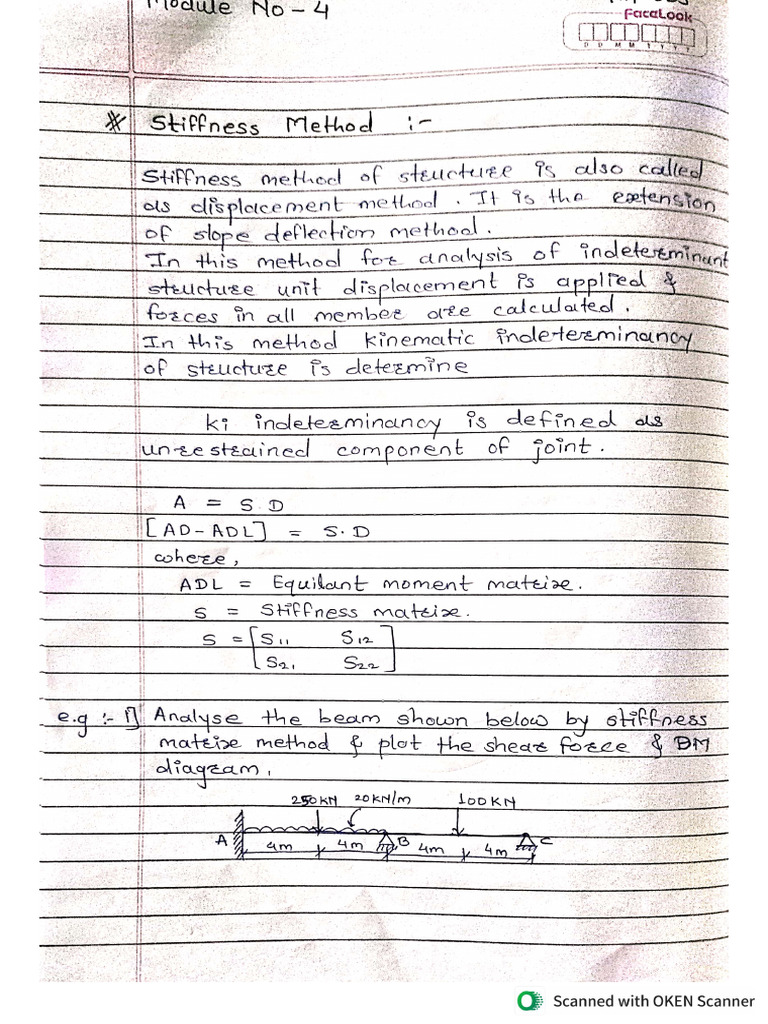 Module No - 4
FacaLook
D D M M Y Y Y Y
* Stiffness Method :-
Stiffness method of structure is also called
as displacement method. It is the extension
of slope deflection method.
In this method for analysis of indeterminant
structure unit displacement is applied &
forces in all member are calculated.
In this method kinematic indeterminancy
of structure is determine
ki indeterminancy is defined as
un-restrained component of joint.
A = S.D
[AD-ADL] = S.D
where,
ADL = Equilant moment matrix.
S = Stiffness matrix.
S = [S11 S12
S21 S22]
e.g :- 1] Analyse the beam shown below by stiffness
matrix method & plot the shear force & BM
diagram,
250KN 20KN/m 100KN
A B C
4m 4m 4m 4m
Scanned with OKEN Scanner